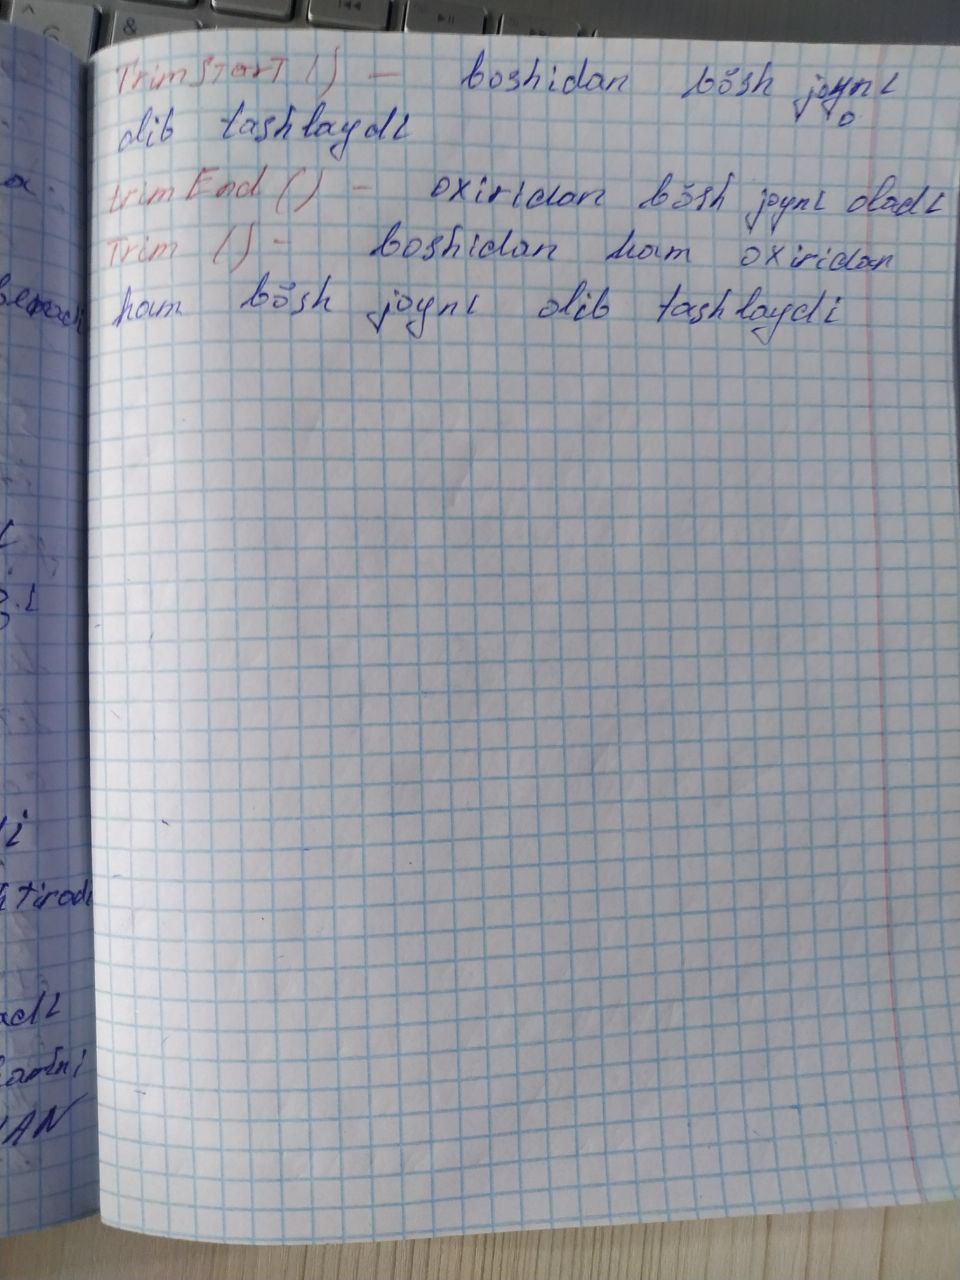 TrimStart () — boshidan bŏsh joyni
olib tashlaydi
trimEnd () - oxiridan bŏsh joyni oladi
Trim () - boshidan ham oxiridan
ham bŏsh joyni olib tashlaydi